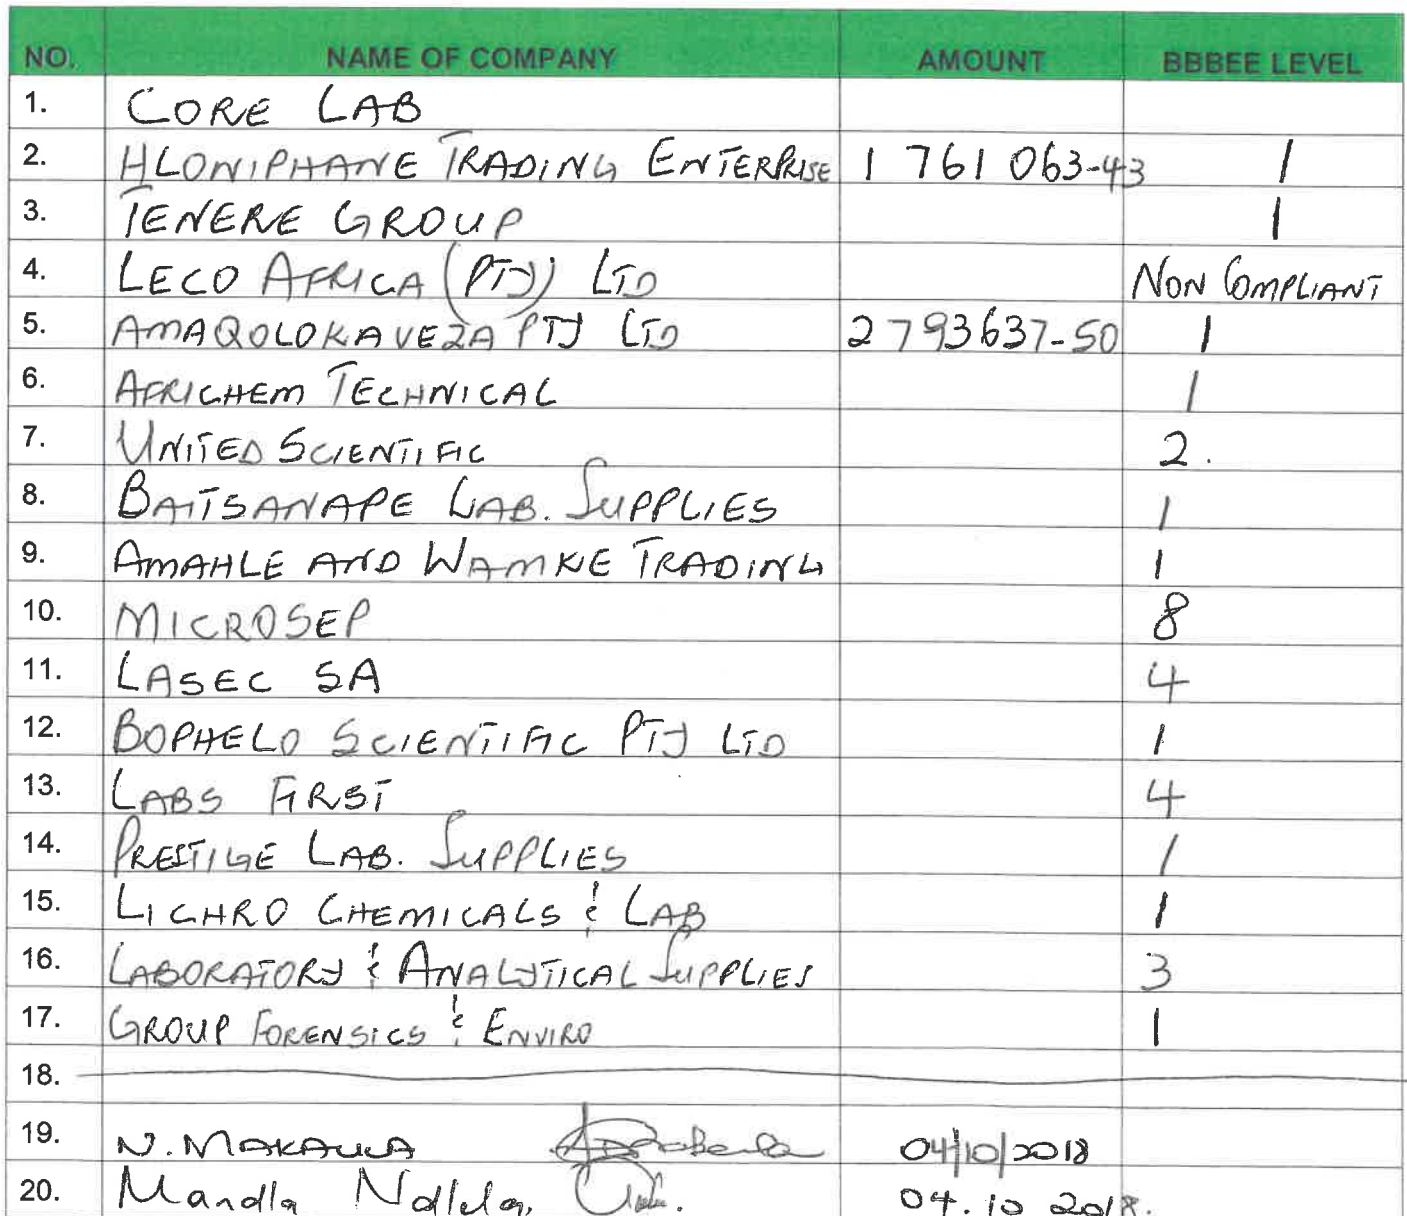 NO. NAME OF COMPANY AMOUNT BBBEE LEVEL
1. CORE LAB
2. HLONIPHANE TRADING ENTERPRISE 1 761 063-43 1
3. TENERE GROUP 1
4. LECO AFRICA (PTY) LTD NON COMPLIANT
5. AMAQOLOKAVEZA PTY LTD 2793637-50 1
6. AFRICHEM TECHNICAL 1
7. UNITED SCIENTIFIC 2.
8. BAITSANAPE LAB. SUPPLIES 1
9. AMAHLE AND WAMKE TRADING 1
10. MICROSEP 8
11. LASEC SA 4
12. BOPHELO SCIENTIFIC PTY LTD 1
13. LABS FIRST 4
14. PRESTIGE LAB. SUPPLIES 1
15. LICHRO CHEMICALS & LAB 1
16. LABORATORY & ANALYTICAL SUPPLIES 3
17. GROUP FORENSICS & ENVIRO 1
18.
19. N. MAKAULA 04/10/2018
20. Mandla Ndlela 04.10 2018.